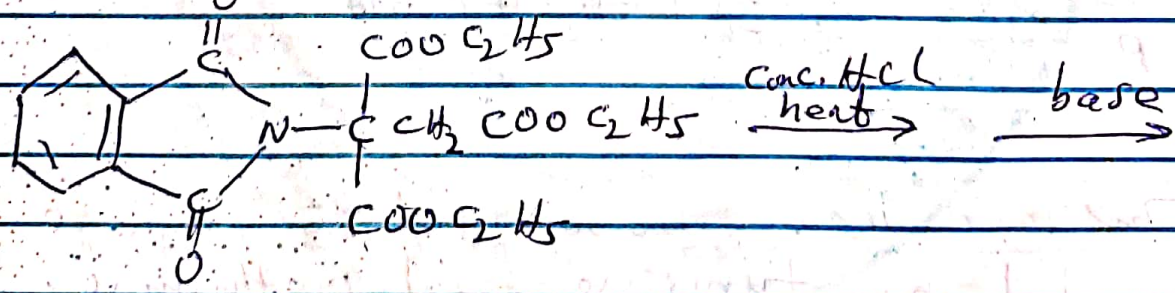 O
C
COO C2H5
N–C CH2 COO C2H5
conc. HCl
heat
base
C
COO C2H5
O